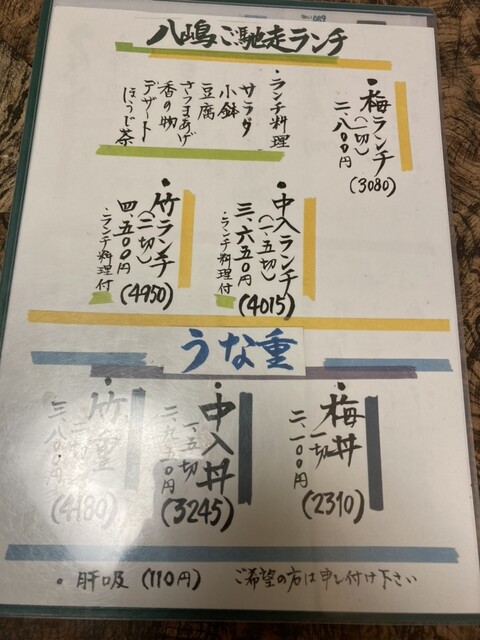 八嶋ご馳走ランチ
・梅ランチ
(一切)
二、八〇〇円
(3080)
・ランチ料理
サラダ
小鉢
豆腐
さつまあげ
香の物
デザート
ほうじ茶
・中入ランチ
(一、五切)
三、六五〇円
(4015)
・ランチ料理付
・竹ランチ
(二切)
四、五〇〇円
(4950)
・ランチ料理付
うな重
・梅丼
一切
二、一〇〇円
(2310)
・中入丼
一、五切
二、九五〇円
(3245)
・竹重
三、八〇〇円
(4180)
・肝吸(110円)
ご希望の店は申し付け下さい